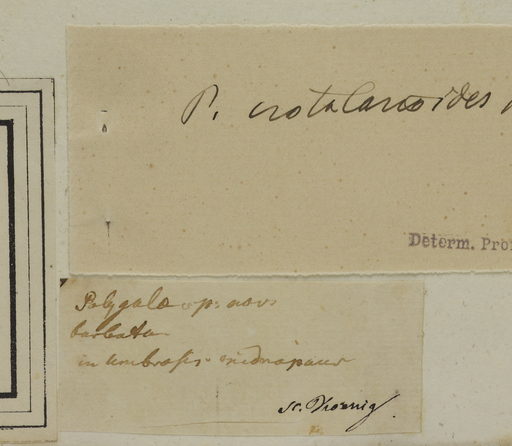 P. crotalarioides
Determ. Pro
Polygala sp: nov:
barbata
in umbrosis
Koenig.